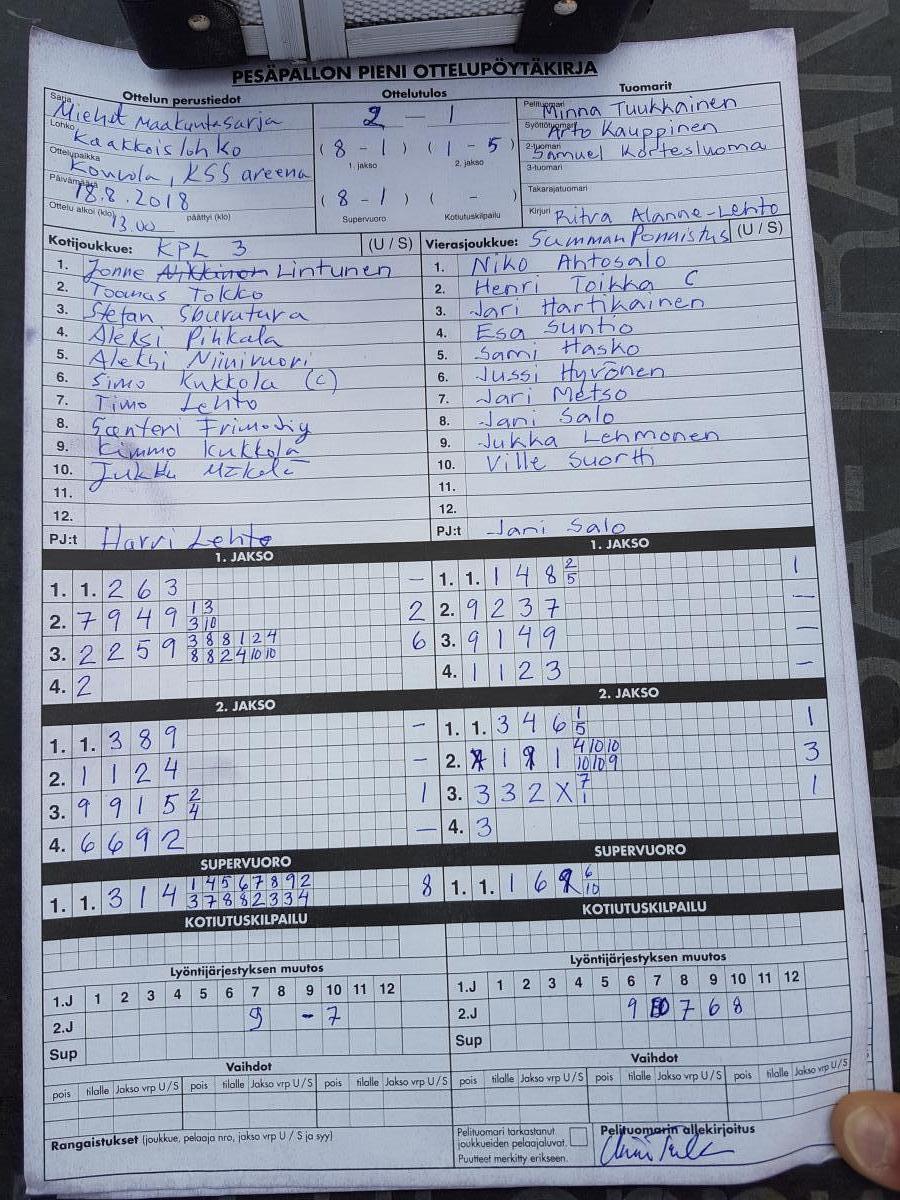 PESÄPALLON PIENI OTTELUPÖYTÄKIRJA
Ottelun perustiedot
Sarja Miehet Maakuntasarja
Lohko Kaakkoislohko
Ottelupaikka Kouvola, KSS areena
Päivämäärä 18.8.2018
Ottelu alkoi (klo) 13.00 päättyi (klo)
Ottelutulos
2 - 1
( 8 - 1 ) ( 1 - 5 )
1. jakso 2. jakso
( 8 - 1 ) ( - )
Supervuoro Kotiutuskilpailu
Tuomarit
Pelituomari Minna Tuukkainen
Syöttötuomari Arto Kauppinen
2-tuomari Samuel Kortesluoma
3-tuomari
Takarajatuomari
Kirjuri Ritva Alanne-Lehto
Kotijoukkue: KPL 3 (U / S)
1. Jonne Lintunen
2. Toomas Tokko
3. Stefan Sburatura
4. Aleksi Pihkala
5. Aleksi Niinivuori
6. Simo Kukkola (c)
7. Timo Lehto
8. Santeri Frimodig
9. Kimmo Kukkola
10. Jukka Mäkelä
11.
12.
PJ:t Harri Lehto
Vierasjoukkue: Summan Ponnistus (U / S)
1. Niko Ahtosalo
2. Henri Toikka C
3. Jari Hartikainen
4. Esa Suntio
5. Sami Hasko
6. Jussi Hyvönen
7. Jari Metso
8. Jani Salo
9. Jukka Lehmonen
10. Ville Suortti
11.
12.
PJ:t Jani Salo
1. JAKSO
1. 1. 2 6 3 –
2. 7 9 4 9 1 3 2
3 10
3. 2 2 5 9 3 8 8 1 2 4 6
8 8 2 4 10 10
4. 2
1. JAKSO
1. 1. 1 4 8 2 1
5
2. 9 2 3 7 –
3. 9 1 4 9 –
4. 1 1 2 3 –
2. JAKSO
1. 1. 3 8 9 –
2. 1 1 2 4 –
3. 9 9 1 5 2 1
4
4. 6 6 9 2 –
2. JAKSO
1. 1. 3 4 6 1 1
5
2. 1 1 4 10 10 3
10 10 9
3. 3 3 2 X 7 1
1
4. 3
SUPERVUORO
1. 1. 3 1 4 1 4 5 6 7 8 9 2 8
3 7 8 8 2 3 3 4
SUPERVUORO
1. 1. 1 6 6
10
KOTIUTUSKILPAILU
KOTIUTUSKILPAILU
Lyöntijärjestyksen muutos
1.J 1 2 3 4 5 6 7 8 9 10 11 12
2.J 9 - 7
Sup
Lyöntijärjestyksen muutos
1.J 1 2 3 4 5 6 7 8 9 10 11 12
2.J 9 10 7 6 8
Sup
Vaihdot
pois tilalle Jakso vrp U / S pois tilalle Jakso vrp U / S pois tilalle Jakso vrp U / S
Vaihdot
pois tilalle Jakso vrp U / S pois tilalle Jakso vrp U / S pois tilalle Jakso vrp U / S
Rangaistukset (joukkue, pelaaja nro, jakso vrp U / S ja syy)
Pelituomari tarkastanut
joukkueiden pelaajaluvat.
Puutteet merkitty erikseen.
Pelituomarin allekirjoitus